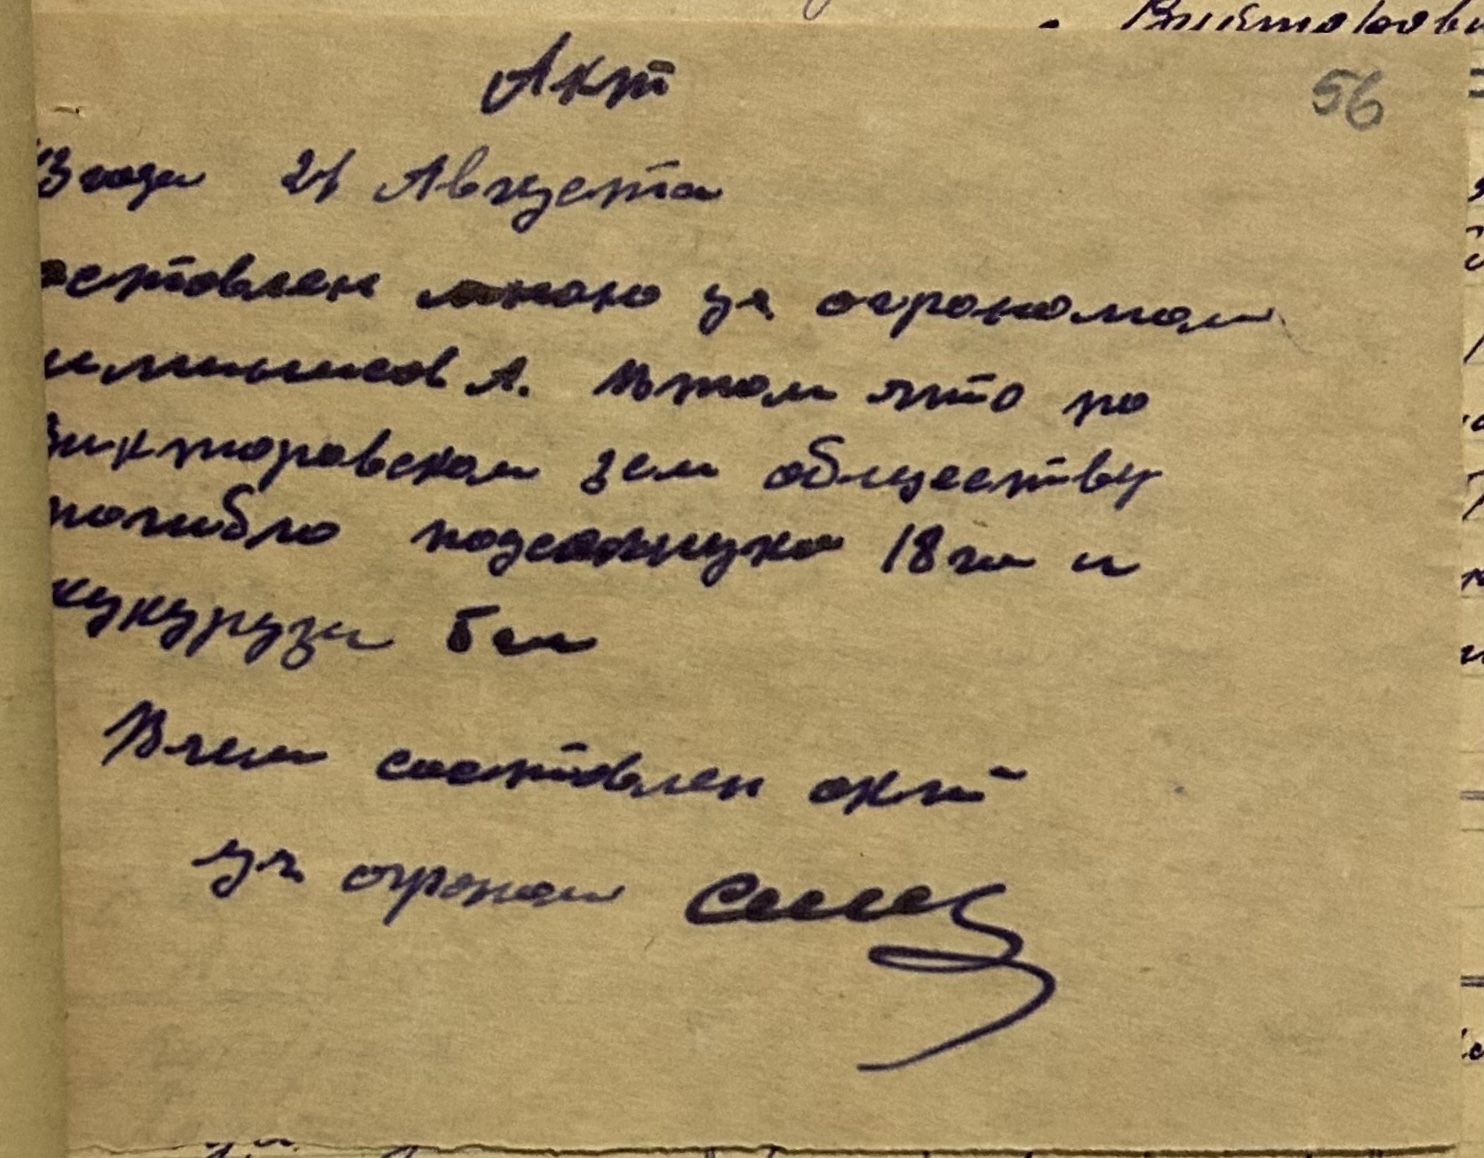 Акт
56
3 года 21 Августа
оставлен мною уч огрономом
А. Втом что по
Викторовском зем обществу
погибло подсолнуха 18 га и
кукурузи 5 га
Вчем состовлен окт
уч огроном